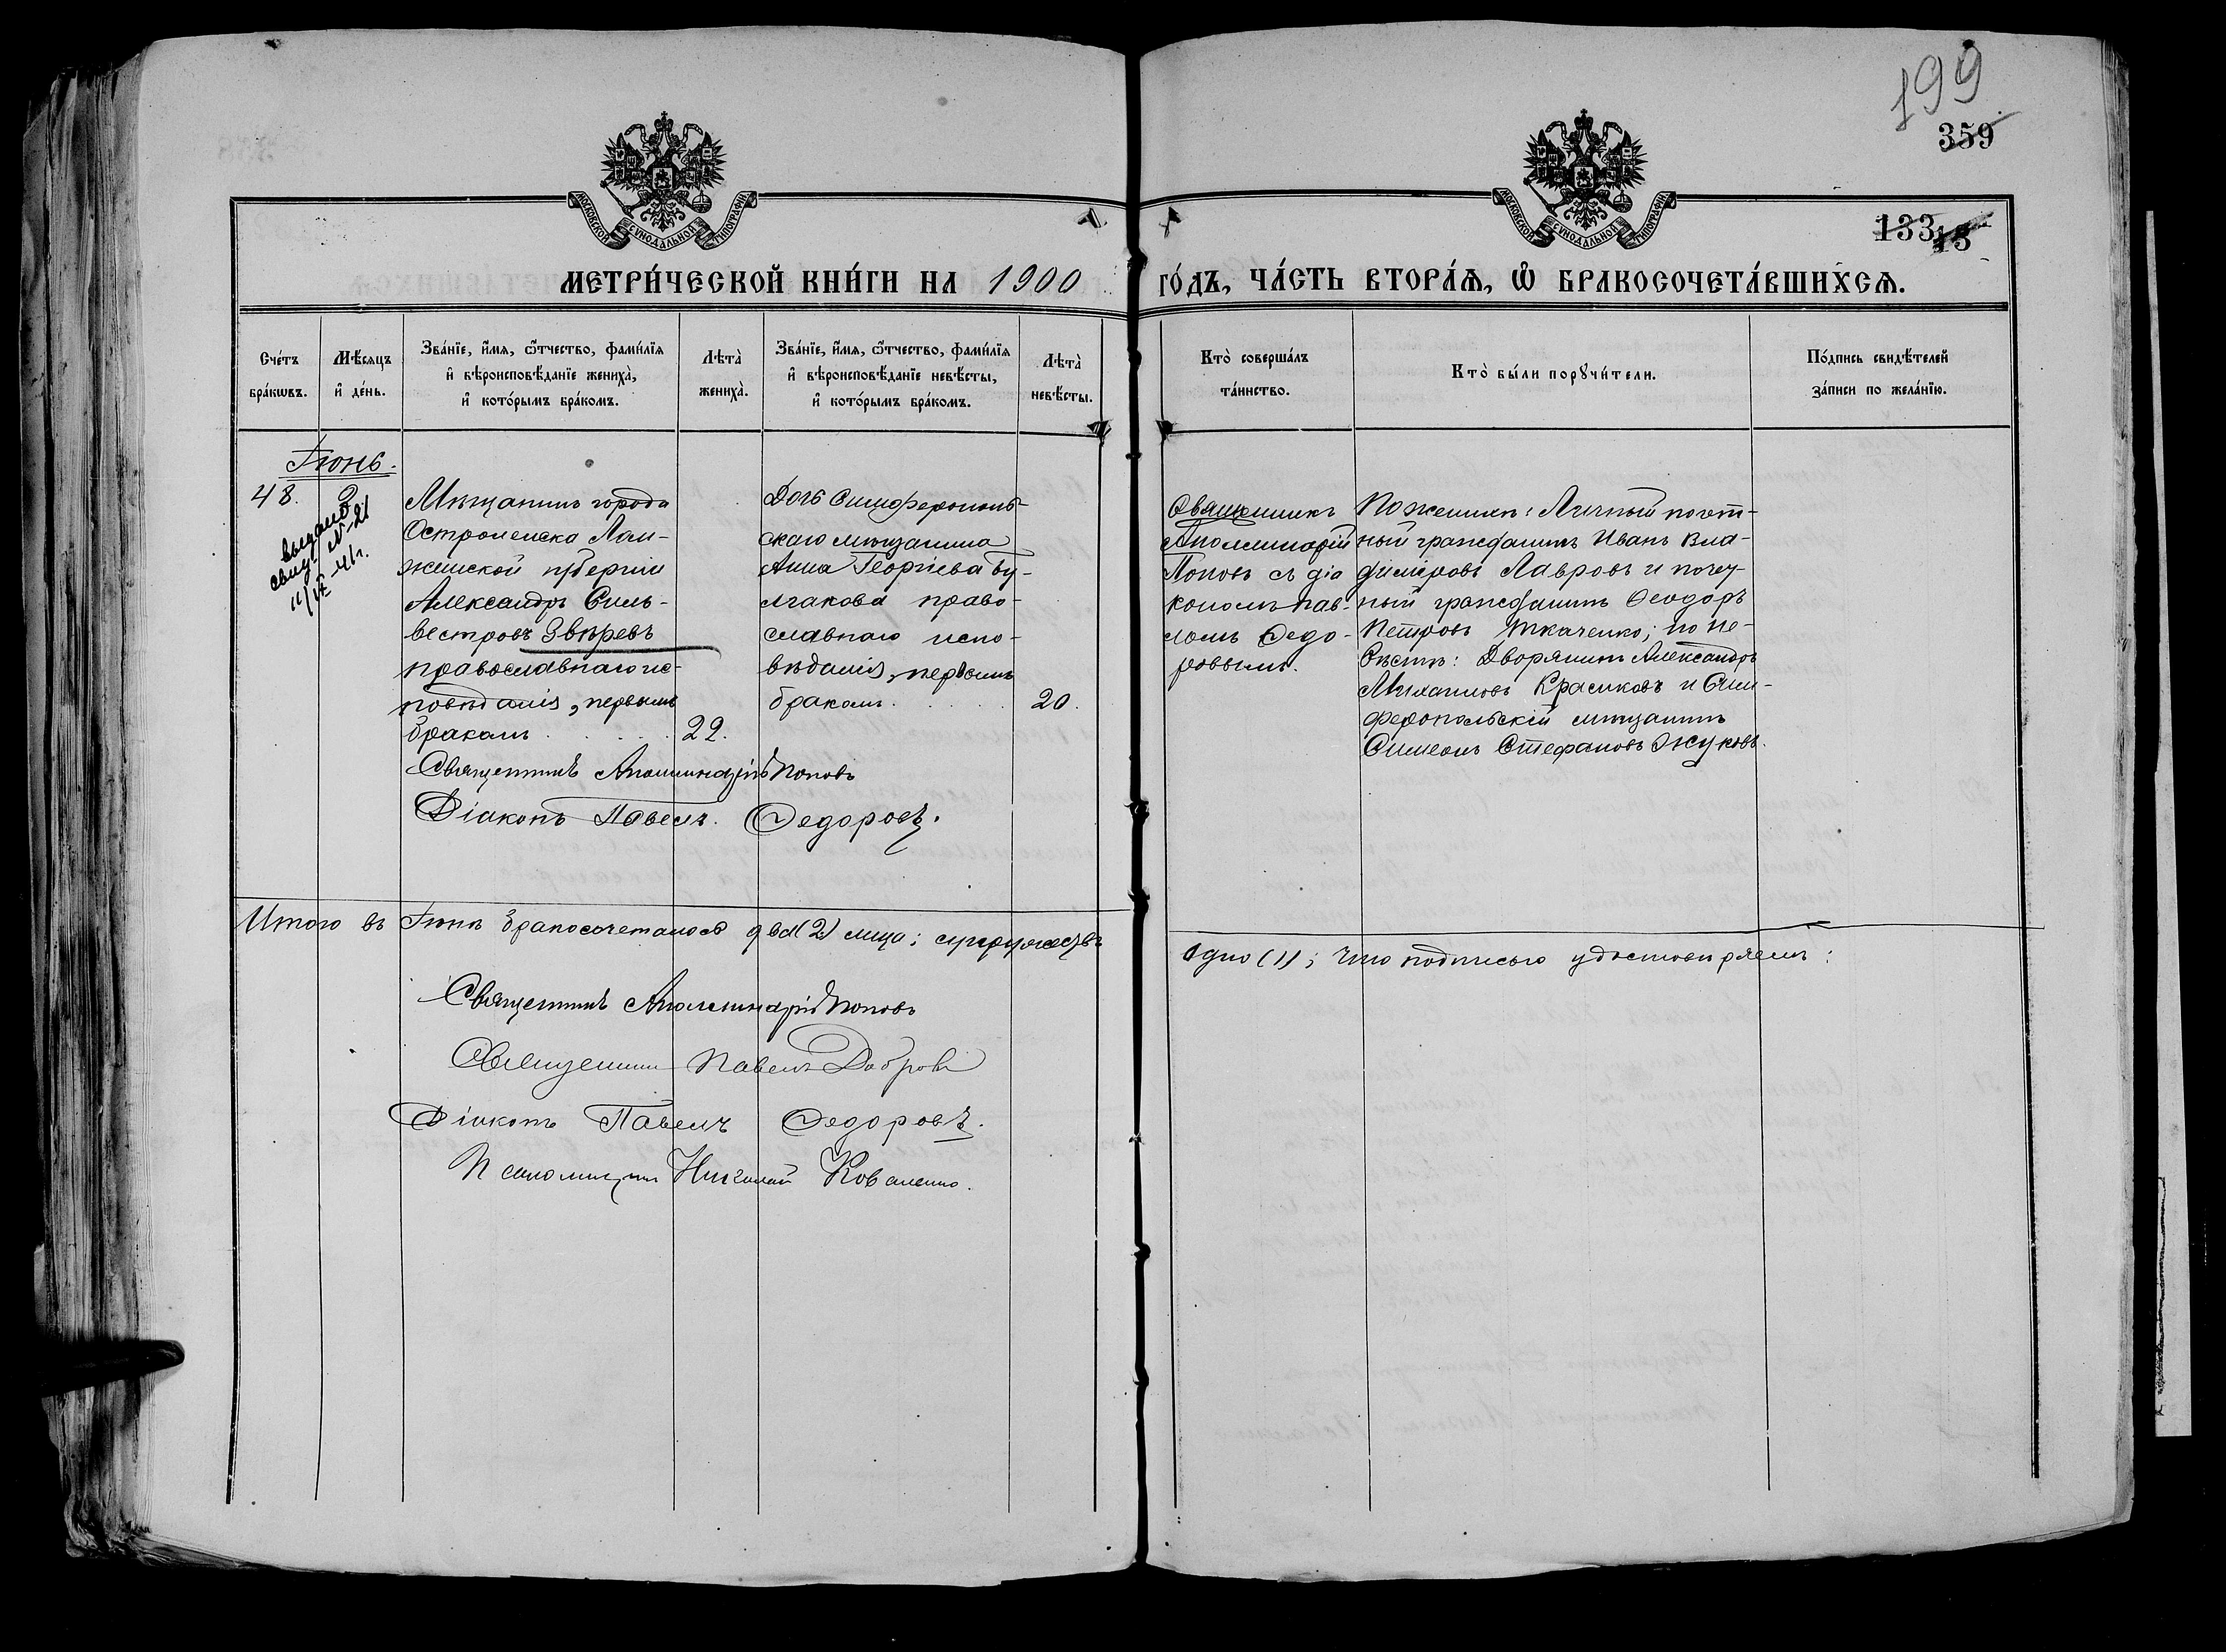 199
359
133 13
МОСКОВСКОЙ СѴНОДАЛЬНОЙ ТИПОГРАФІИ
МОСКОВСКОЙ СѴНОДАЛЬНОЙ ТИПОГРАФІИ
МЕТРИ́ЧЕСКОЙ КНИ́ГИ НА 1900 ГО́ДЪ, ЧА́СТЬ ВТОРА́Ѧ, Ѽ БРАКОСОЧЕТА́ВШИХСѦ.
Сче́тъ
бра́кѡвъ.
Мѣ́сяцъ
и҆ де́нь.
Зва́нїе, и҆́мѧ, ѻ҆́тчество, фами́лїѧ
и҆ вѣроисповѣ́данїе жениха̀,
и҆ кото́рымъ бра́комъ.
Лѣта̀
жениха̀.
Зва́нїе, и҆́мѧ, ѻ҆́тчество, фами́лїѧ
и҆ вѣроисповѣ́данїе невѣ́сты,
и҆ кото́рымъ бра́комъ.
Лѣта̀
невѣ́сты.
Кто̀ соверша́лъ
та́инство.
Кто̀ бы́ли порꙋчи́тели.
По́дпись свидѣ́телей
за́писи по жела́нїю.
Іюнь.
48.
выдано
свид. № 21
11/IX-41 г.
Мѣщанинъ города
Остроленска Лом-
жинской губерніи
Александръ Силь-
вестровъ Звѣревъ
православнаго ис-
повѣданія, первымъ
бракомъ . . . . . 22.
Дочь Симферополь-
скаго мѣщанина
Анна Георгіева Бу-
лгакова право-
славнаго испо-
вѣданія, первымъ
бракомъ . . . . 20.
Священникъ
Аполлинарій
Поповъ съ діа
кономъ Пав-
ломъ Федо-
ровымъ.
По женихѣ: Личный почет-
ный гражданинъ Иванъ Вла-
диміровъ Лавровъ и почет-
ный гражданинъ Ѳеодоръ
Петровъ Ткаченко; по не-
вѣстѣ: Дворянинъ Александръ
Михаиловъ Красиковъ и Сим-
феропольскій мѣщанинъ
Симеонъ Стефановъ Жуковъ.
Священникъ Аполлинарій Поповъ
Діаконъ Павелъ Федоровъ.
Итого въ Іюнѣ бракосочеталось два (2) лица; супружествъ
одно (1); что подписью удостовѣряемъ:
Священникъ Аполлинарій Поповъ
Священникъ Павелъ Добровъ
Діаконъ Павелъ Федоровъ.
Псаломщикъ Николай Коваленко.